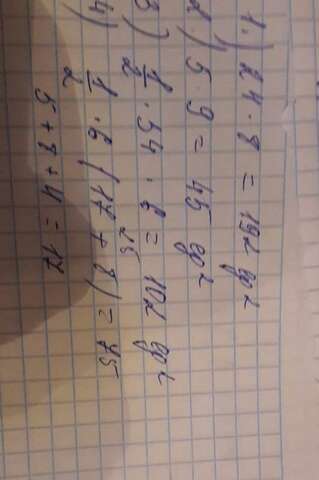 1.) 24 · 8 = 192 ед²
2) 5 · 9 = 45 ед²
3) 1/2 · 34 · 6 = 102 ед²
25
4) 1/2 · 6 (17 + 8) = 75
5 + 8 + 4 = 17